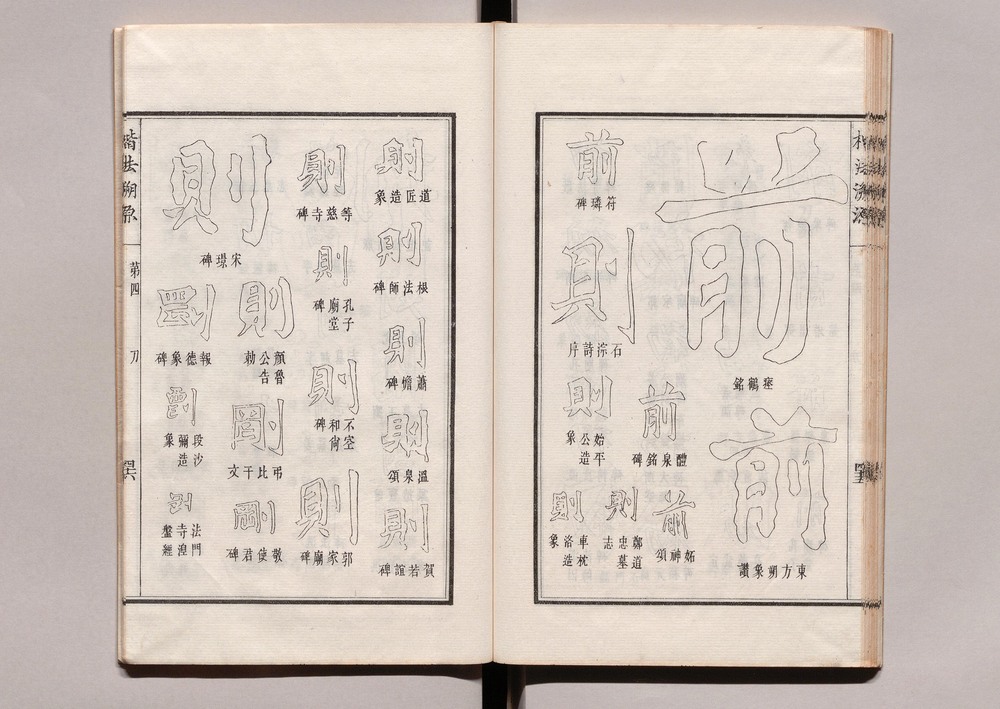 前
瘞鶴銘
前
東方朔象讚
前
符璘碑
則
石淙詩序
前
醴泉銘碑
則
始平公造象
前
妬神頌
則
鄭道忠墓志
則
車枕洛造象
則
道匠造象
則
根法師碑
則
蕭憺碑
則
溫泉頌
則
賀若誼碑
則
等慈寺碑
則
孔子廟堂碑
則
不空和尙碑
則
郭家廟碑
則
宋璟碑
則
顏魯公告勅
剛
弔比干文
剛
敬使君碑
剛
報德象碑
剛
段沙彌造象
法門寺湼槃經
楷法溯原
第四
刀